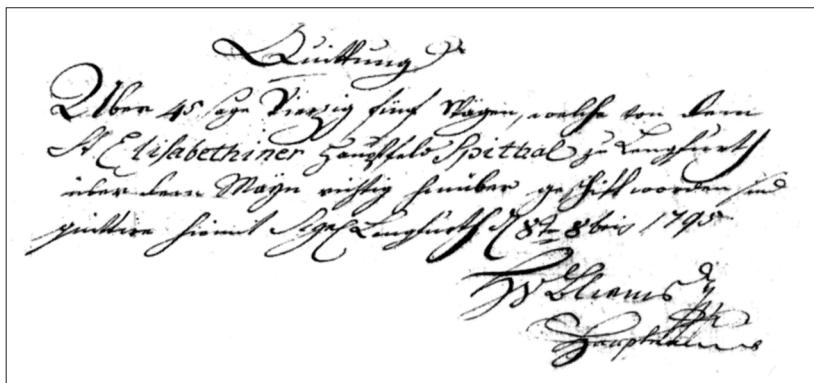 Quittung
Über 45 sage Vierzig fünf Wägen, welche von dem
St Elisabethiner Hauptfeld Spithal zu Lengfurth
über dem Mayn richtig hinüber geschift worden sind
quittire hiemit Lengfurth d 8t 8bris 1795
Hauptmann